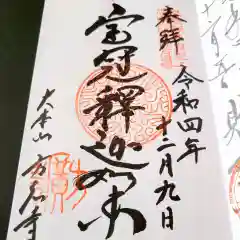 奉拝
令和四年
十二月九日
宝冠釋迦如来
大本山 方広寺